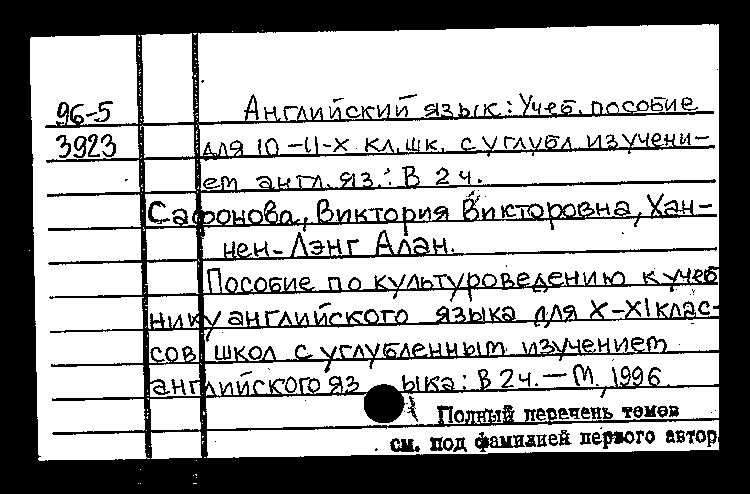 96-5 Английский язык: Учеб. пособие
3923 для 10-11-х кл. шк. с углубл. изучени-
ем англ. яз.: В 2 ч.
Сафонова, Виктория Викторовна, Хан-
нен-Лэнг Алан.
Пособие по культуроведению к учеб
нику английского языка для X-XI клас-
сов школ с углубленным изучением
английского яз ыка: В 2 ч. — М, 1996
Полный перечень томов
см. под фамилией первого автор